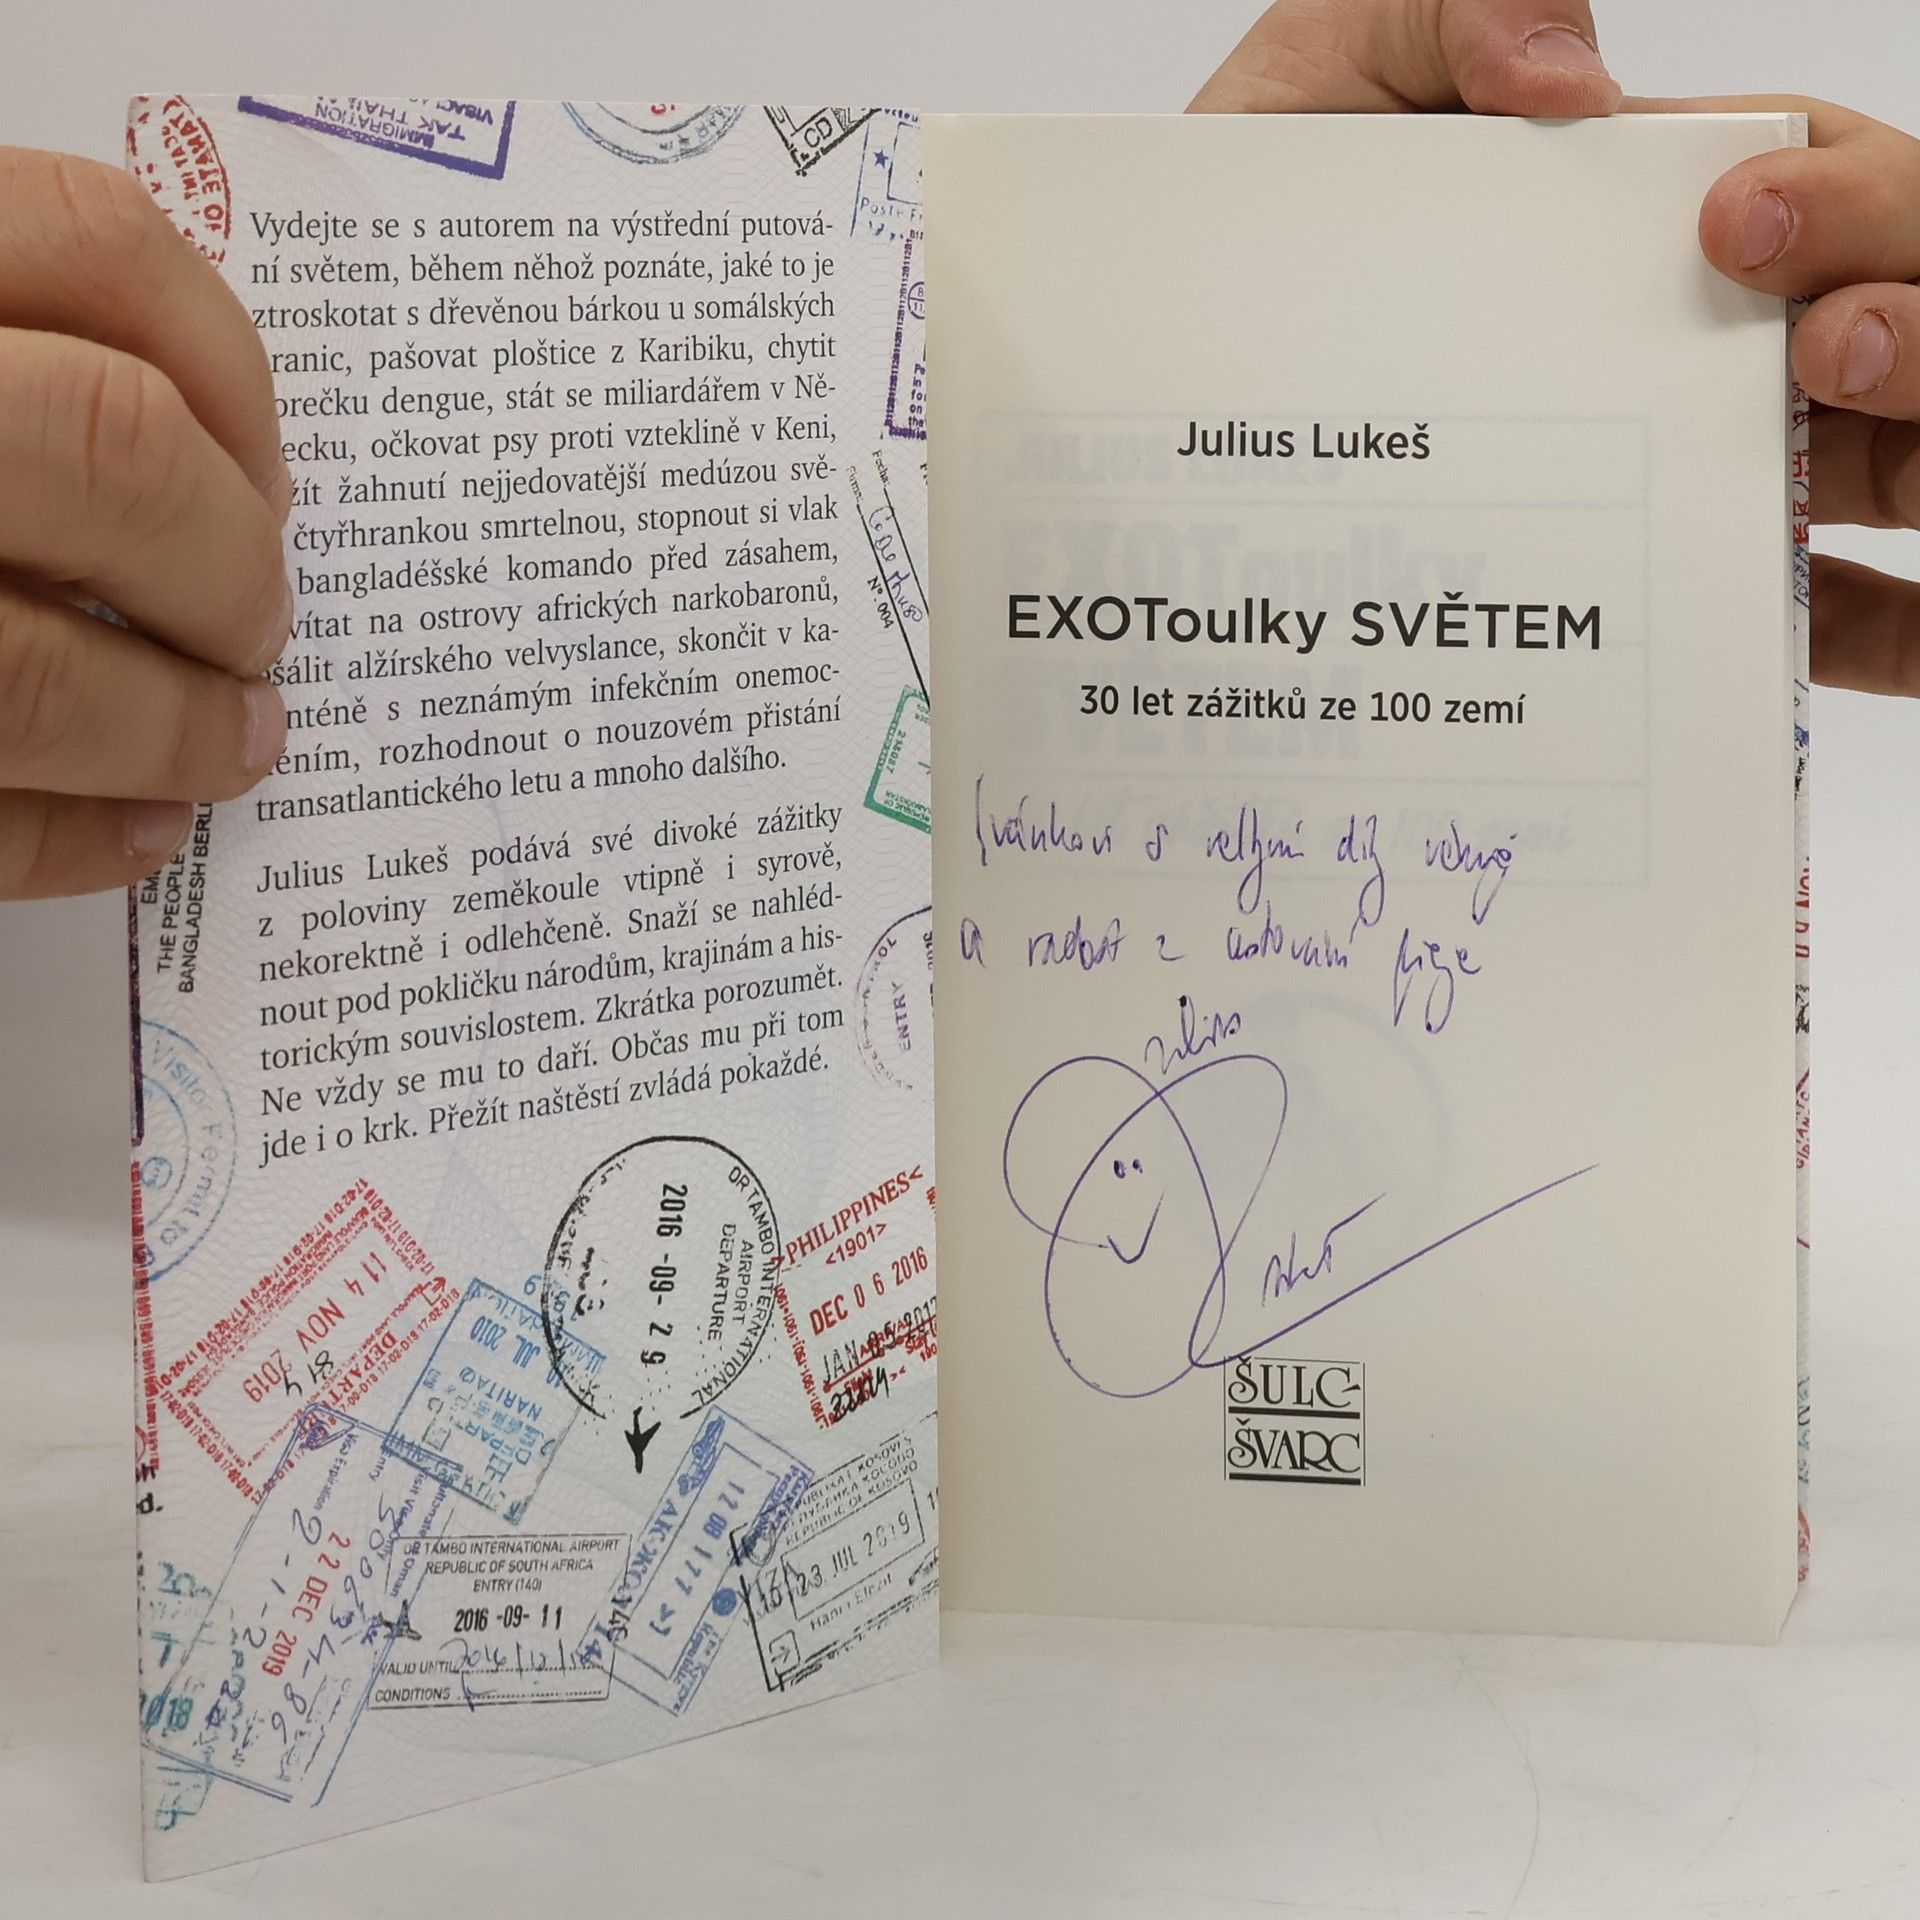 IMMIGRATION
TAK THAI
Vydejte se s autorem na výstřední putová-
ní světem, během něhož poznáte, jaké to je
ztroskotat s dřevěnou bárkou u somálských
ranic, pašovat ploštice z Karibiku, chytit
orečku dengue, stát se miliardářem v Ně-
ecku, očkovat psy proti vzteklině v Keni,
žít žahnutí nejjedovatější medúzou svě-
čtyřhrankou smrtelnou, stopnout si vlak
bangladéšské komando před zásahem,
vítat na ostrovy afrických narkobaronů,
šálit alžírského velvyslance, skončit v ka-
nténě s neznámým infekčním onemoc-
něním, rozhodnout o nouzovém přistání
transatlantického letu a mnoho dalšího.
Julius Lukeš podává své divoké zážitky
z poloviny zeměkoule vtipně i syrově,
nekorektně i odlehčeně. Snaží se nahléd-
nout pod pokličku národům, krajinám a his-
torickým souvislostem. Zkrátka porozumět.
Ne vždy se mu to daří. Občas mu při tom
jde i o krk. Přežít naštěstí zvládá pokaždé.
Nº. 004
THE PEOPLE
BANGLADESH BERLI
ENTRY
OR TAMBO INTERNATIONAL
AIRPORT
DEPARTURE
2016 -09- 29
PHILIPPINES
<1901>
DEC 06 2016
14 NOV 2019
DEPART
JUL 2010
NARITA
22 DEC 2019
OR TAMBO INTERNATIONAL AIRPORT
REPUBLIC OF SOUTH AFRICA
ENTRY (140)
2016 -09- 11
VALID UNTIL
CONDITIONS
12 08 17
REPUBLIC OF KOSOVO
23 JUL 2019
Hani i Elezit
Julius Lukeš
EXOToulky SVĚTEM
30 let zážitků ze 100 zemí
s velkými díky
a radost z cestování
Julius
ŠULC-
ŠVARC